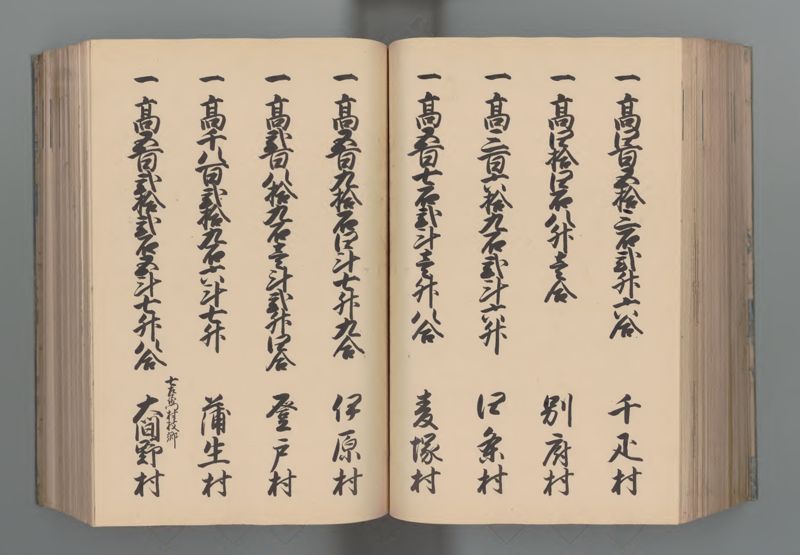 一 髙四百五拾三石弐升六合 千疋村
一 髙四拾四石八升壱合 別府村
一 髙三百六拾九石弐斗六升 四条村
一 髙五百七石弐斗壱升八合 麦塚村
一 髙五百九拾石四斗七升九合 伊原村
一 髙弐百八拾九石壱斗弐升四合 登戸村
一 髙千八百弐拾九石六斗七升 蒲生村
七左衛門村枝郷
一 髙五百弐拾弐石五斗七升八合 大間野村